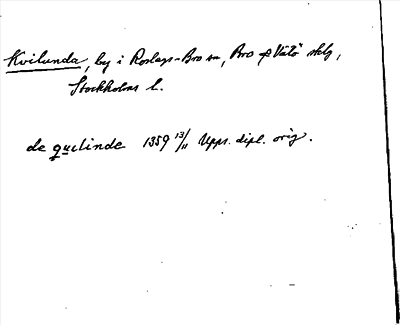 Kvilunda, by i Roslags-Bro sn, Bro o Vätö sklg,
Stockholms l.
de quilinde 1359 13/11 Upps. dipl. orig.